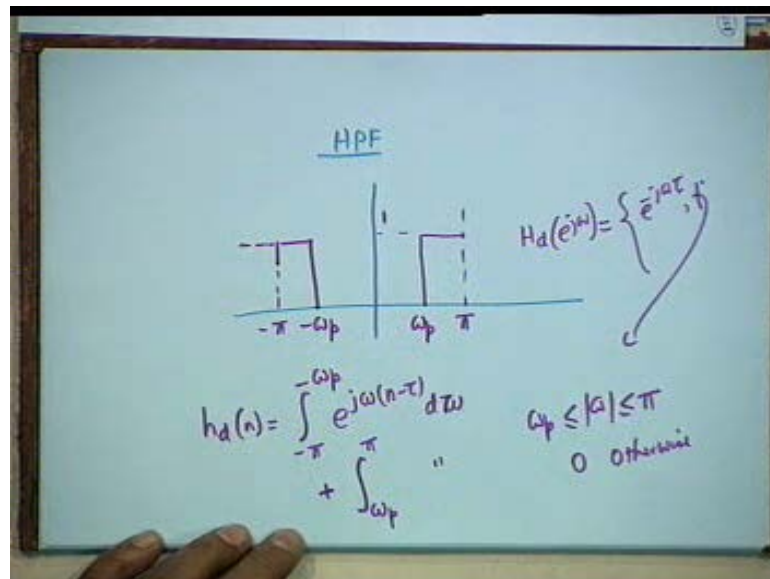 HPF
1
-π -ωp ωp π
Hd(e^jω) = { e^-jωτ, f
hd(n) = ∫_-π^-ωp e^jω(n-τ) dτω
+ ∫_ωp^π "
ωp ≤ |ω| ≤ π
0 otherwise